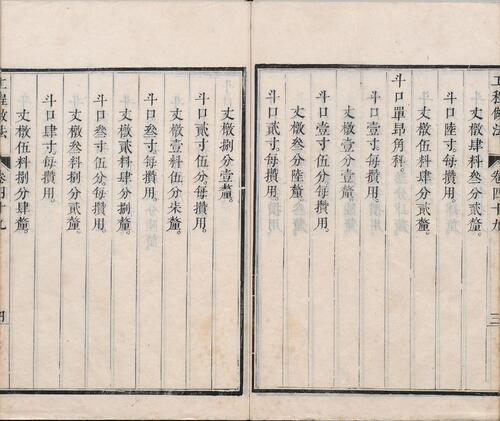 工程做法 卷四十九 三
丈橔叁料叁分貳釐。
斗口陸寸每攢用。
丈橔肆料肆分貳釐。
斗口單昂角科。
斗口壹寸每攢用。
丈橔壹分壹釐。
斗口壹寸伍分每攢用。
丈橔叁分陸釐。
斗口貳寸每攢用。
丈橔捌分壹釐。
斗口貳寸伍分每攢用。
丈橔壹料伍分柒釐。
斗口叁寸每攢用。
丈橔貳料肆分捌釐。
斗口叁寸伍分每攢用。
丈橔叁料捌分貳釐。
斗口肆寸每攢用。
丈橔伍料捌分肆釐。
工程做法 卷四十九 四